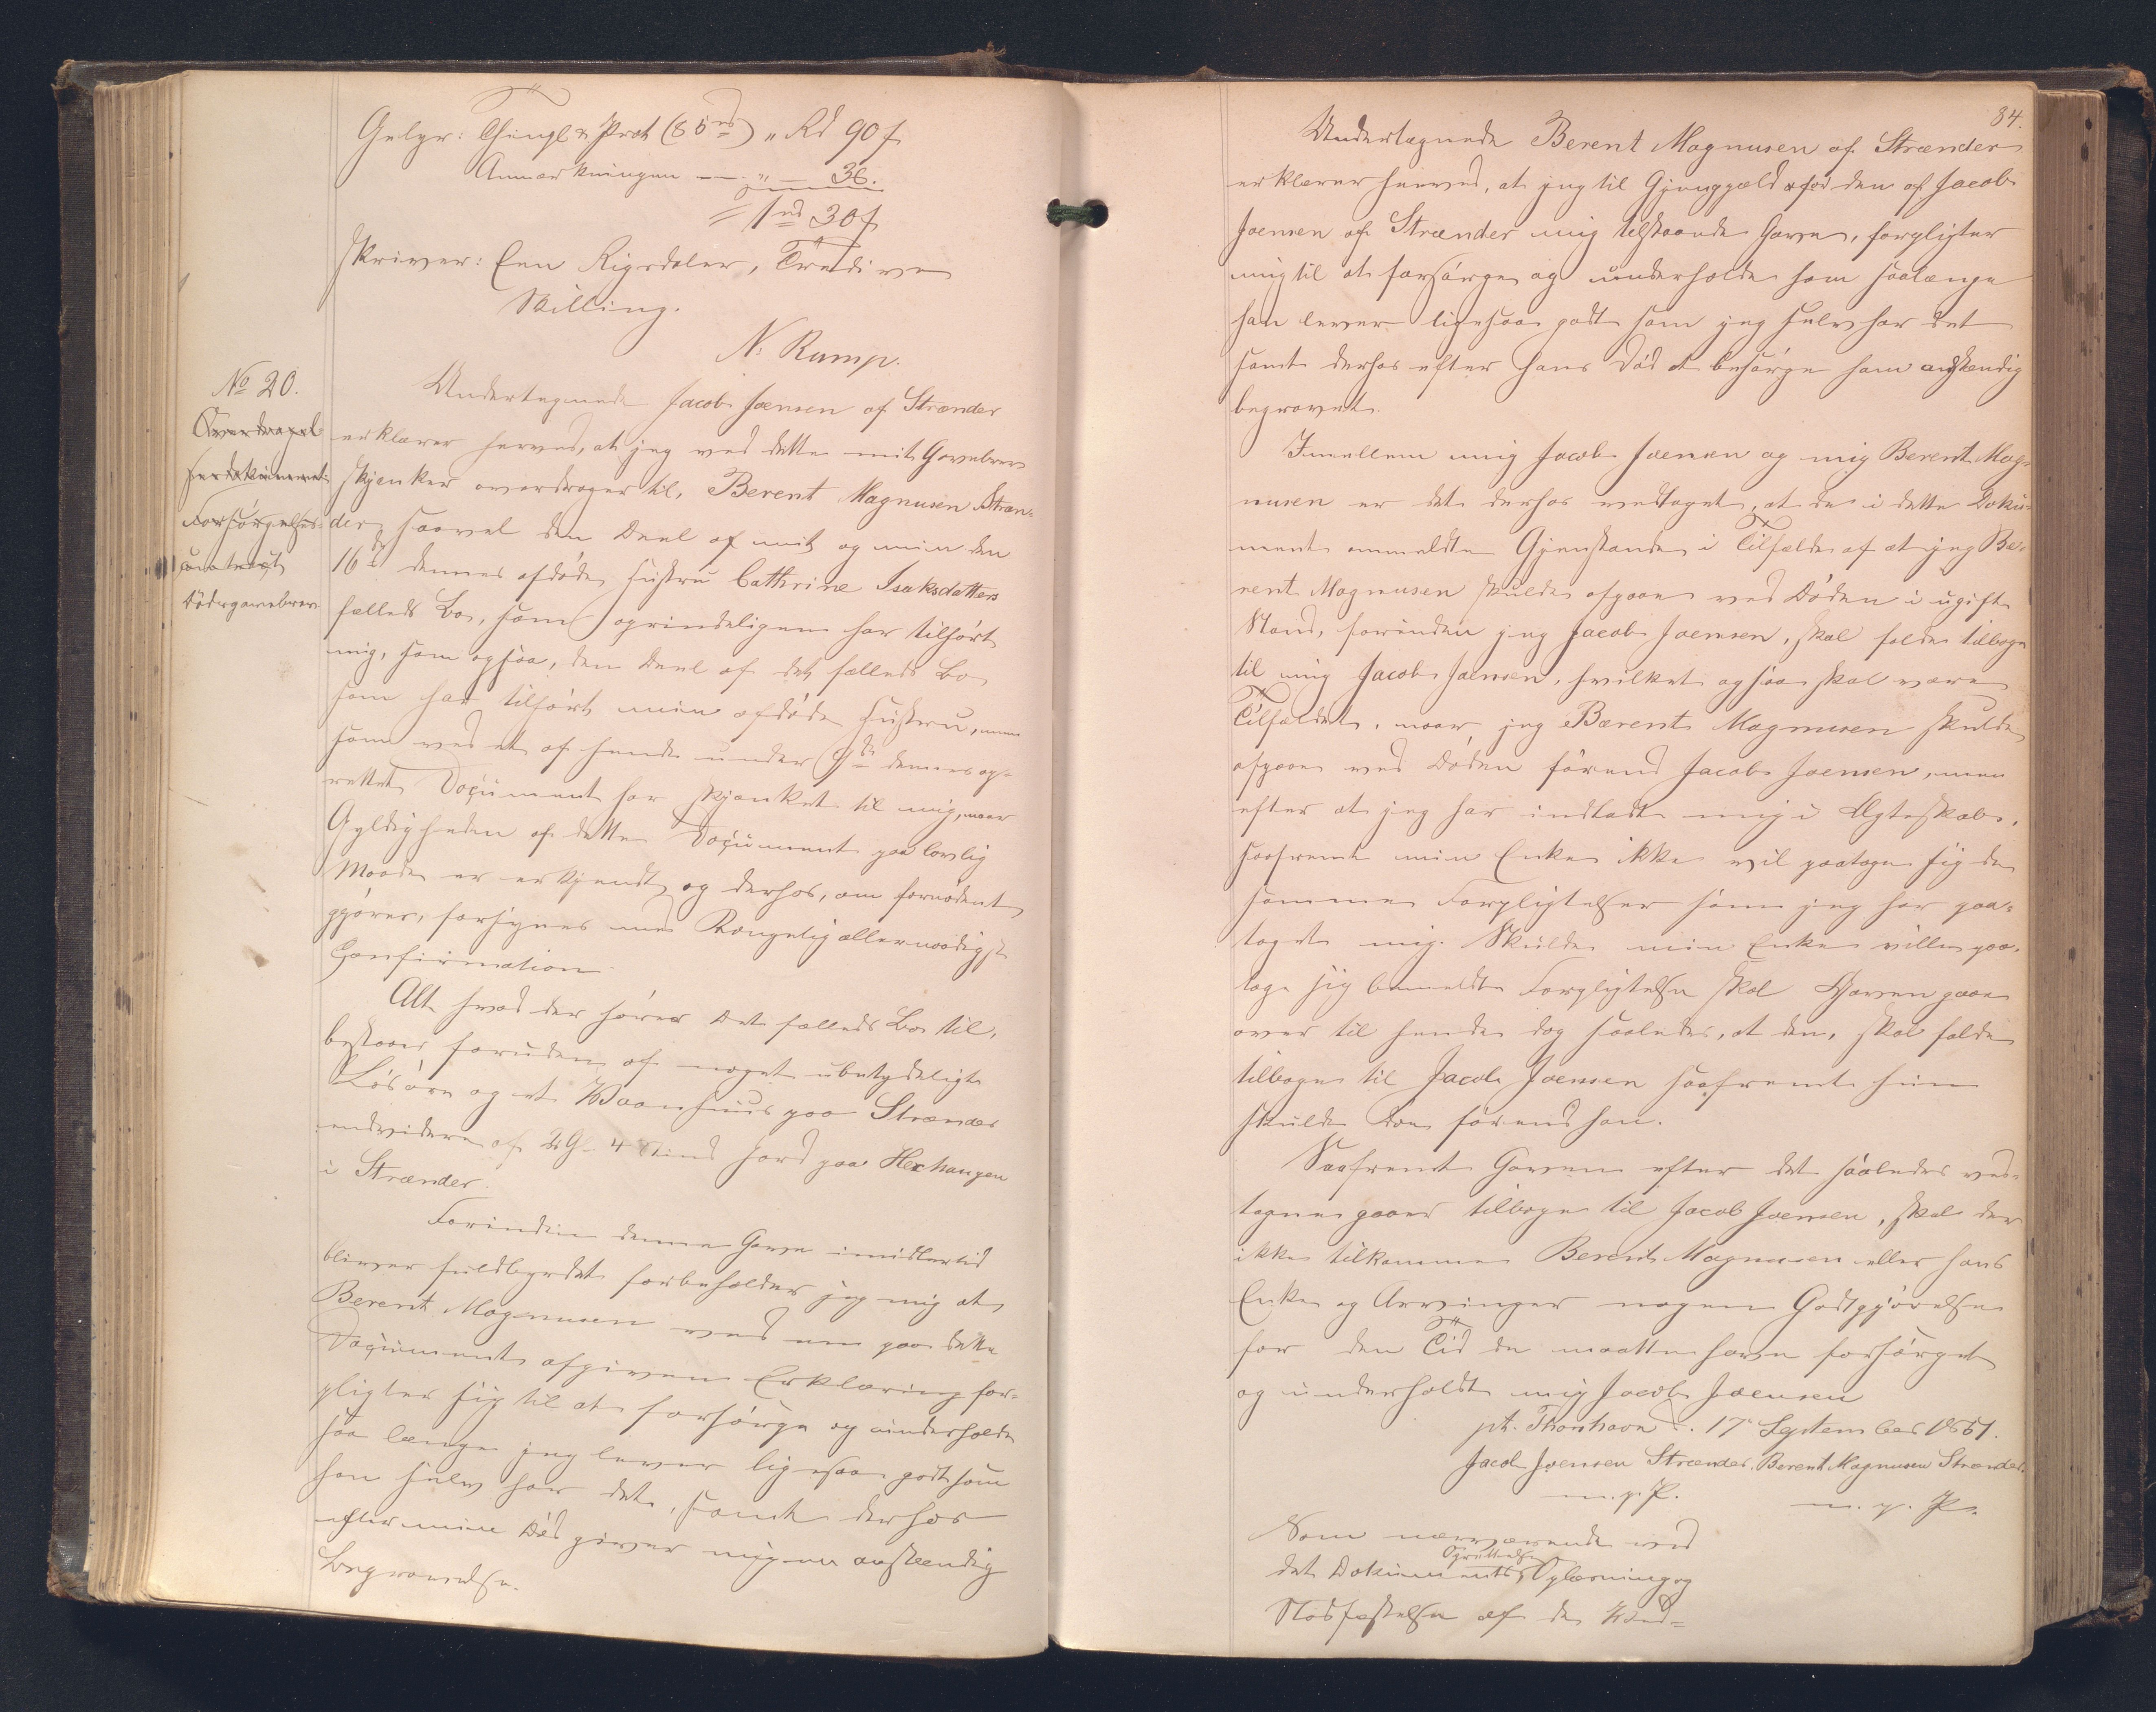 Gebyr: Thingl & Prot (85 rd) " Rd 90 f
Anmærkningen — " — 36.
= 1 rd 30 f
skriver: Een Rigsdaler, Tredive
Skilling.
N. Rump.
No 20.
Overdragel
Forsörgelses-
contract
Dödsgavebrev
Undertegnede Jacob Joensen af Strænder
erklærer herved, at jeg ved dette mit Gavebrev
skjenker overdrager til, Berent Magnusen Stræn-
der, saavel den Deel af mit og min den
16 de dennes afdöde Hustru Cathrine Isaksdatters
fælleds Bo, som oprindeligen har tilhört
mig, som ogsaa, den Deel af det fælleds Bo
som har tilhört min afdöde Hustru, men
som ved et af hende under 9 de dennes op-
rettet Document har skjænket til mig, naar
Gyldigheden af dette Document paa lovlig
Maade er erkjendt, og derhos, om fornödent
gjöres, forsynes med Kongelig allernaadigst
Confirmation
Alt hvad der hörer det fælleds Bo til,
bestaaer foruden af noget ubetydeligt
Lösöre og et Vaanhuus paa Strænder
endvidere af 2 G 4 Skind Jord paa Hexhaugen
i Strænder.
Forinden denne Gave imidlertid
bliver fuldbyrdet forbeholder jeg mig at
Berent Magnusen ved en paa dette
Document afgiven Erklæring for-
pligter sig til at forsörge og underholde
saa længe jeg lever ligesaa godt som
han selv har det, samt derhos
efter min Död giver mig en anstændig
Begravelse.
84.
Undertegnede Berent Magnusen af Strænder
erklærer herved, at jeg til Gjengjæld for den af Jacob
Joensen af Strænder mig tilstaaede Gave, forpligter
mig til at forsörge og underholde ham saalænge
han lever ligesaa godt som jeg selv har det
samt derhos efter hans Död at besörge ham anstændig
begravet.
Imellem mig Jacob Joensen og mig Berent Mag-
nusen er det derhos vedtaget, at de i dette Doku-
ment ommeldte Gjenstande i Tilfælde af at jeg Be-
rent Magnusen skulde afgaae ved Döden i ugift
Stand, forinden jeg Jacob Joensen, skal falde tilbage
til mig Jacob Joensen, hvilket ogsaa skal være
Tilfældet, naar jeg Berent Magnusen skulde
afgaae ved Döden förend Jacob Joensen, men
efter at jeg har indladt mig i Ægteskab,
saafremt min Enke ikke vil paatage sig de
samme Forpligtelser som jeg har paa-
taget mig. Skulde min Enke ville paa-
tage sig bemeldte Forpligtelse skal Gaven gaae
over til hende dog saaledes, at den, skal falde
tilbage til Jacob Joensen saafremt hun
skulde döe förend han.
Saafremt Gaven efter det saaledes ved-
tagne gaaer tilbage til Jacob Joensen, skal der
ikke tilkomme Berent Magnusen eller hans
Enke og Arvinger nogen Godtgjörelse
for den Tid de maatte have forsörget
og underholdt mig Jacob Joensen
pt. Thorshavn d. 17 September 1861.
Jacob Joensen Strænder. Berent Magnusen Strænder.
m. p. P. m. p. P.
Som nærværende ved
det Dokuments Oprettelse Oplæsning og
Stadfæstelse af de Ved-